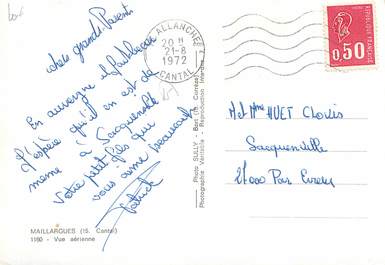 chers grands Parents
En auvergne il fait beau
j'espère qu'il en est de
meme à Sacquenville
votre petit fils que
vous aime beaucoup
Patrick
MAILLARGUES (15. Cantal)
1160 - Vue aérienne
Photo SULLY - Bort (19. Corrèze)
Photographie Véritable - Reproduction Interdite
ALLANCHE
20 H
21-8
1972
CANTAL
0,50
M et Mme HUET Clovis
Sacquenville
27000 Par Evreux